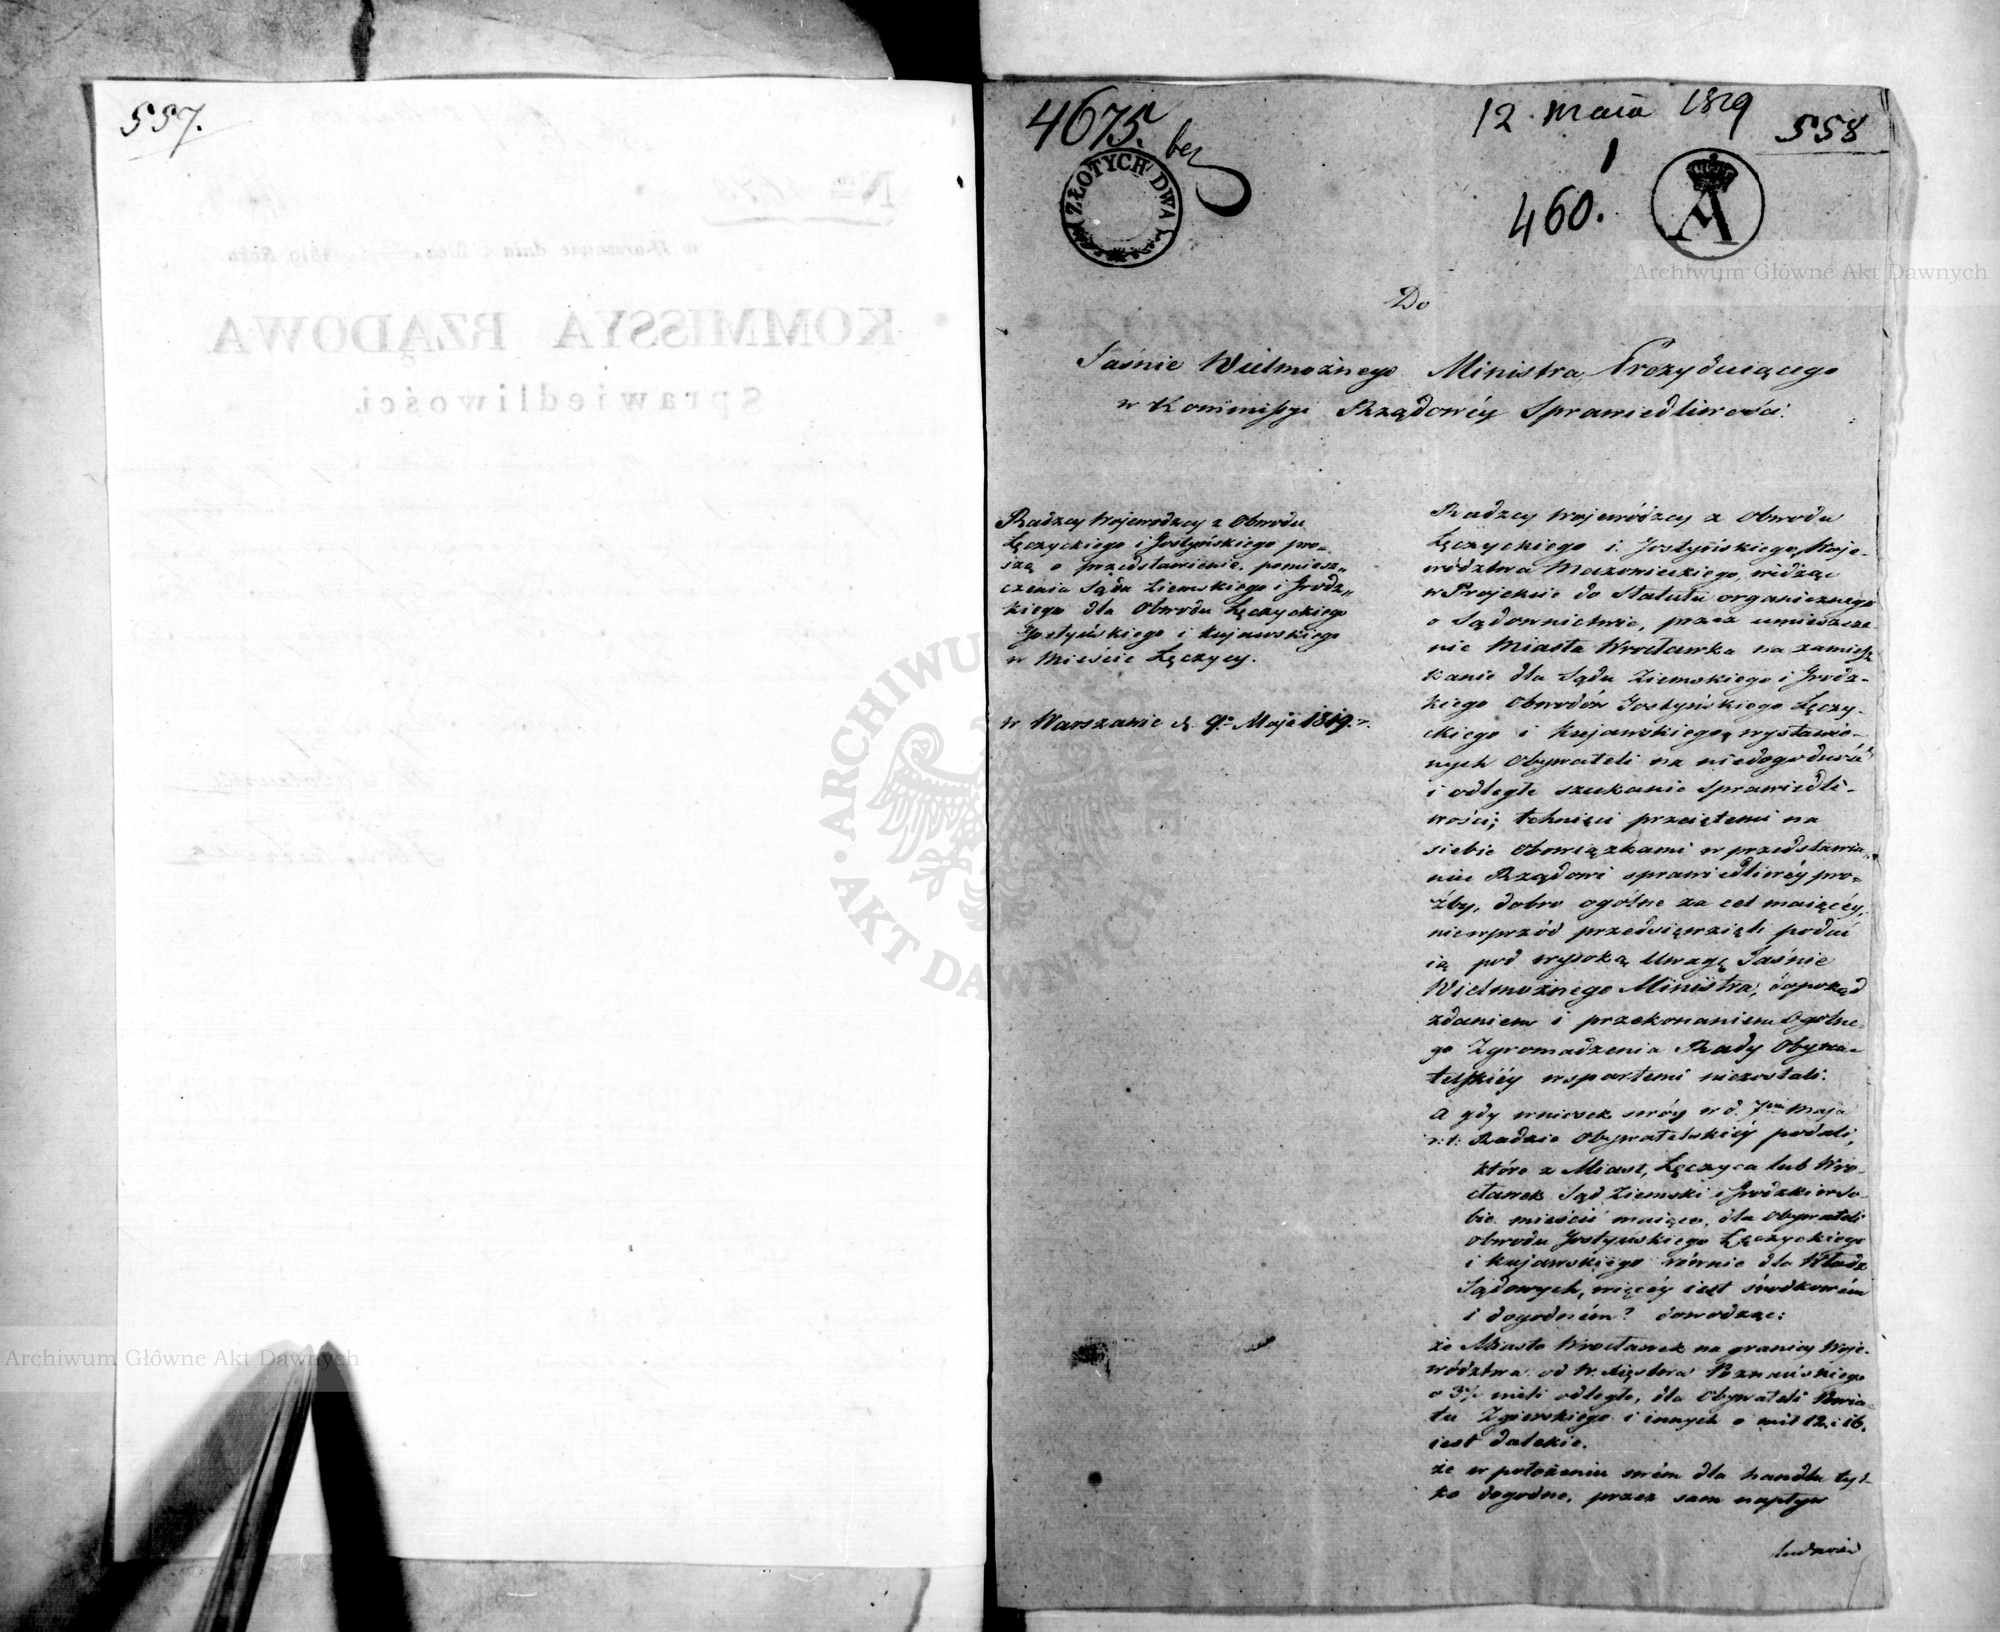 557.
4675.
ZŁOTYCH DWA
12 Maia 1819
558
460.
Do
Jaśnie Wielmożnego Ministra Prezyduiącego
w Kommissyi Rządowéy Sprawiedliwości.
Radzcy Wojewódzcy z Obwodu
Łęczyckiego i Gostyńskiego pro-
szą o przedstawienie, pomiesz-
czenia Sądu Ziemskiego i Grodz-
kiego dla Obwodu Łęczyckiego
Gostyńskiego i Kujawskiego
w Mieście Łęczycy.
w Warszawie d. 9o Maja 1819.
Radzcy Wojewódzcy z Obwodu
Łęczyckiego i Gostyńskiego, Woje-
wództwa Mazowieckiego, widząc
w Projekcie do Statutu organicznego
o Sądownictwie, przez umieszcze
nie Miasta Wrocławka na zamiesz
kanie dla Sądu Ziemskiego i Grodz-
kiego Obwodów Gostyńskiego Łęczy-
ckiego i Kujawskiego, wystawio-
nych Obywateli na niedogodność
i odległe szukanie sprawiedli-
wości; tchnięci przeiętemi na
siebie obowiązkami w przedstawia-
niu Rządowi sprawiedliwéy pro-
źby, dobro ogólne za cel maiącéy,
nieprzód przedsięwzięli podać
ią pod wysoką Uwagę Jaśnie
Wielmożnego Ministra, dopokąd
zdaniem i przekonaniem Ogólne-
go Zgromadzenia Rady Obywa-
telskiéy wspartemi niezostali.
A gdy wniosek swóy w d. 7ym Maja
r: t: Radzie Obywatelskiéy podali,
które z Miast, Łęczyca lub Wro-
cławek Sąd Ziemski i Grodzki w So-
bie mieścić maiące, dla Obywateli
Obwodu Gostyńskiego Łęczyckiego
i Kujawskiego równie dla Władz
Sądowych, więcéy iest środkowém
i dogodném? dowodząc:
że Miasto Wrocławek na granicy Woje-
wództwa od W. Xięstwa Poznańskiego
o 3½ mili odległe, dla Obywateli Powia-
tu Zgierskiego i innych o mil 12. i 16.
iest dalekie.
że w położeniu swém dla handlu tyl-
ko dogodne, przez sam napływ
ludności
KOMMISSYA RZĄDOWA
Sprawiedliwości.
Archiwum Główne Akt Dawnych
Archiwum Główne Akt Dawnych
ARCHIWUM
AKT DAWNYCH